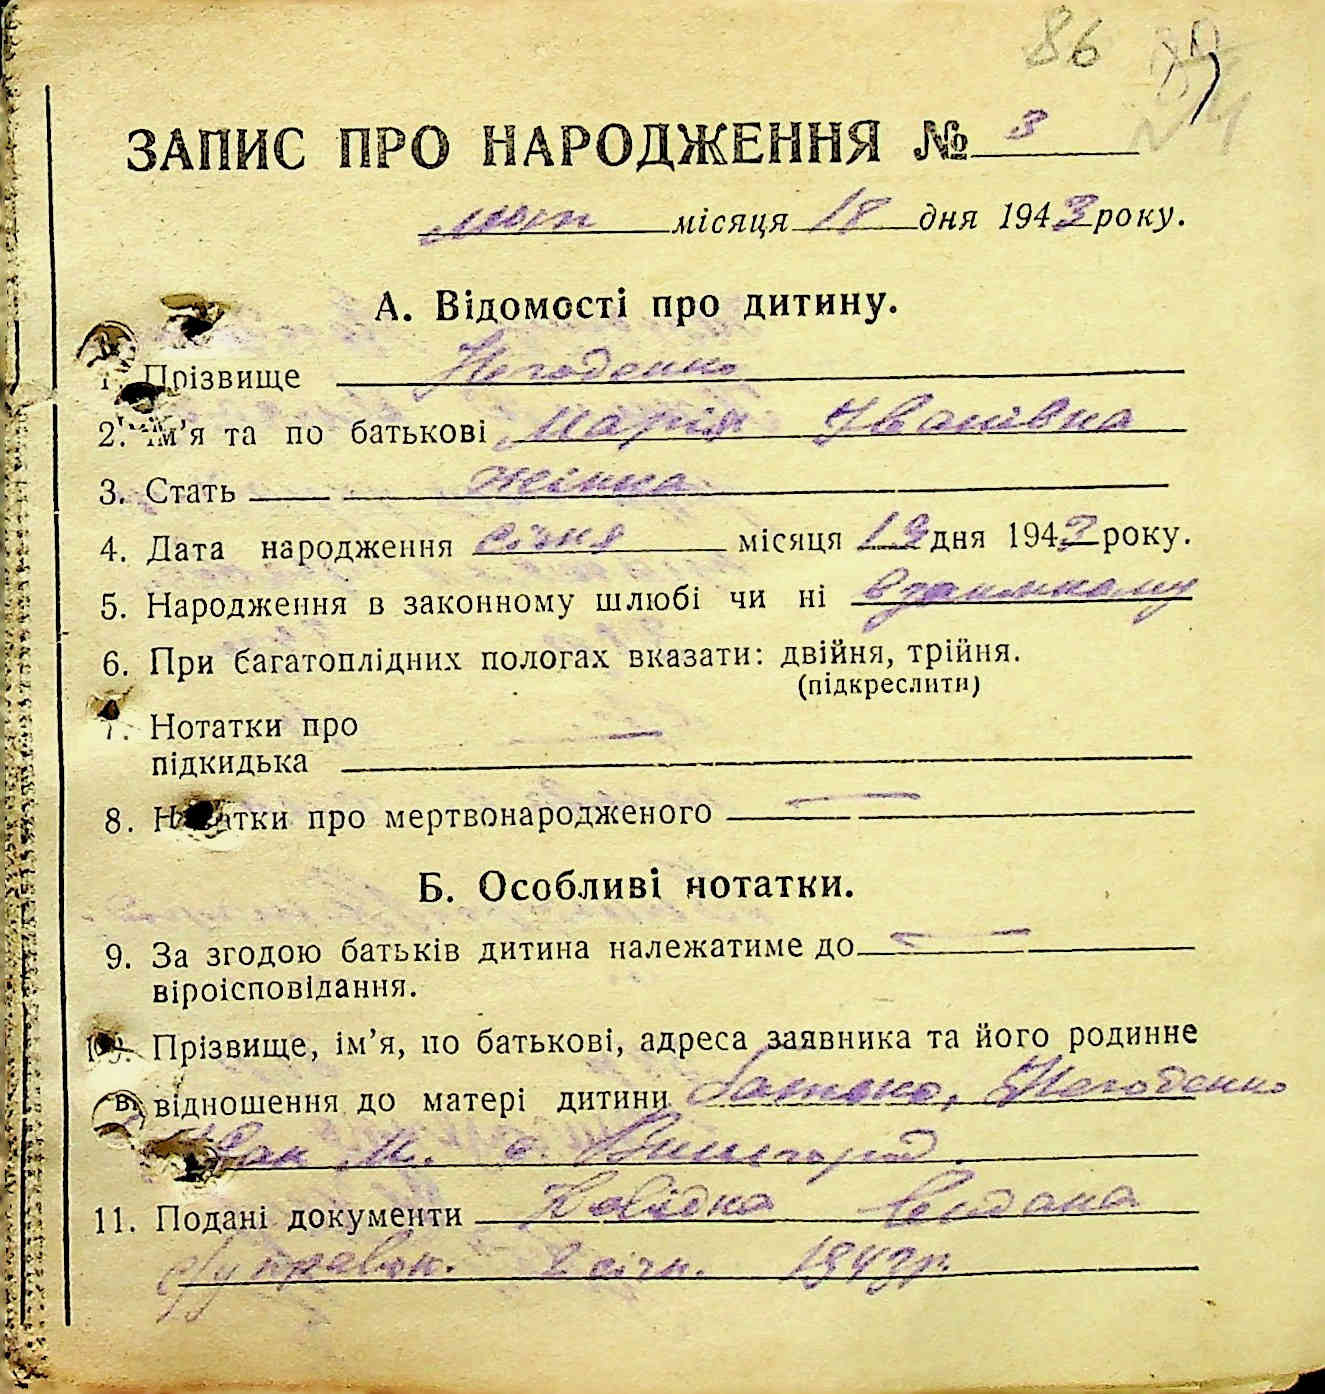 86
ЗАПИС ПРО НАРОДЖЕННЯ № 3
лют місяця 18 дня 1943 року.
А. Відомості про дитину.
1. Прізвище Негоденко
2. Ім'я та по батькові Марія Іванівна
3. Стать жінка
4. Дата народження січня місяця 19 дня 1943 року.
5. Народження в законному шлюбі чи ні в законному
6. При багатоплідних пологах вказати: двійня, трійня.
(підкреслити)
7. Нотатки про
підкидька —
8. Нотатки про мертвонародженого —
Б. Особливі нотатки.
9. За згодою батьків дитина належатиме до —
віроісповідання.
10. Прізвище, ім'я, по батькові, адреса заявника та його родинне
відношення до матері дитини батько, Негоденко
Іван М. с. Вишгород
11. Подані документи Довідка видана
с/управою. 2 січн. 1943 р.